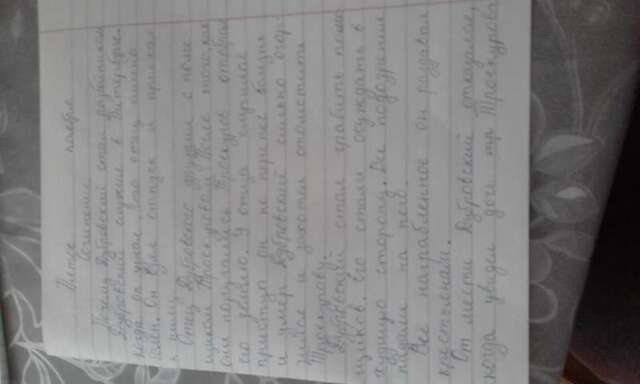 Пятое ноября
Сочинение
Почему Дубровский стал разбойником
Дубровский служил в Питербурге.
Когда он узнал, что отец сильно
болен. Он взял отпуск и приехал
к нему.
Отец Дубровского дружил с поме
щиком Троекуровом. После того, как
они поругались Троекуров отобрал
его землю. У отца случился
приступ он не перенёс болезни
и умер. Дубровский сильно огор-
чился и захотел отомстить
Троекурову.
Дубровский стал грабить поме
щиков. Его стали осуждать в
худшую сторону. Все подозрения
падали на него.
Всё награбленное он раздавал
крестьянам.
От мести Дубровский отказался,
когда увидел доч тр Троекурова